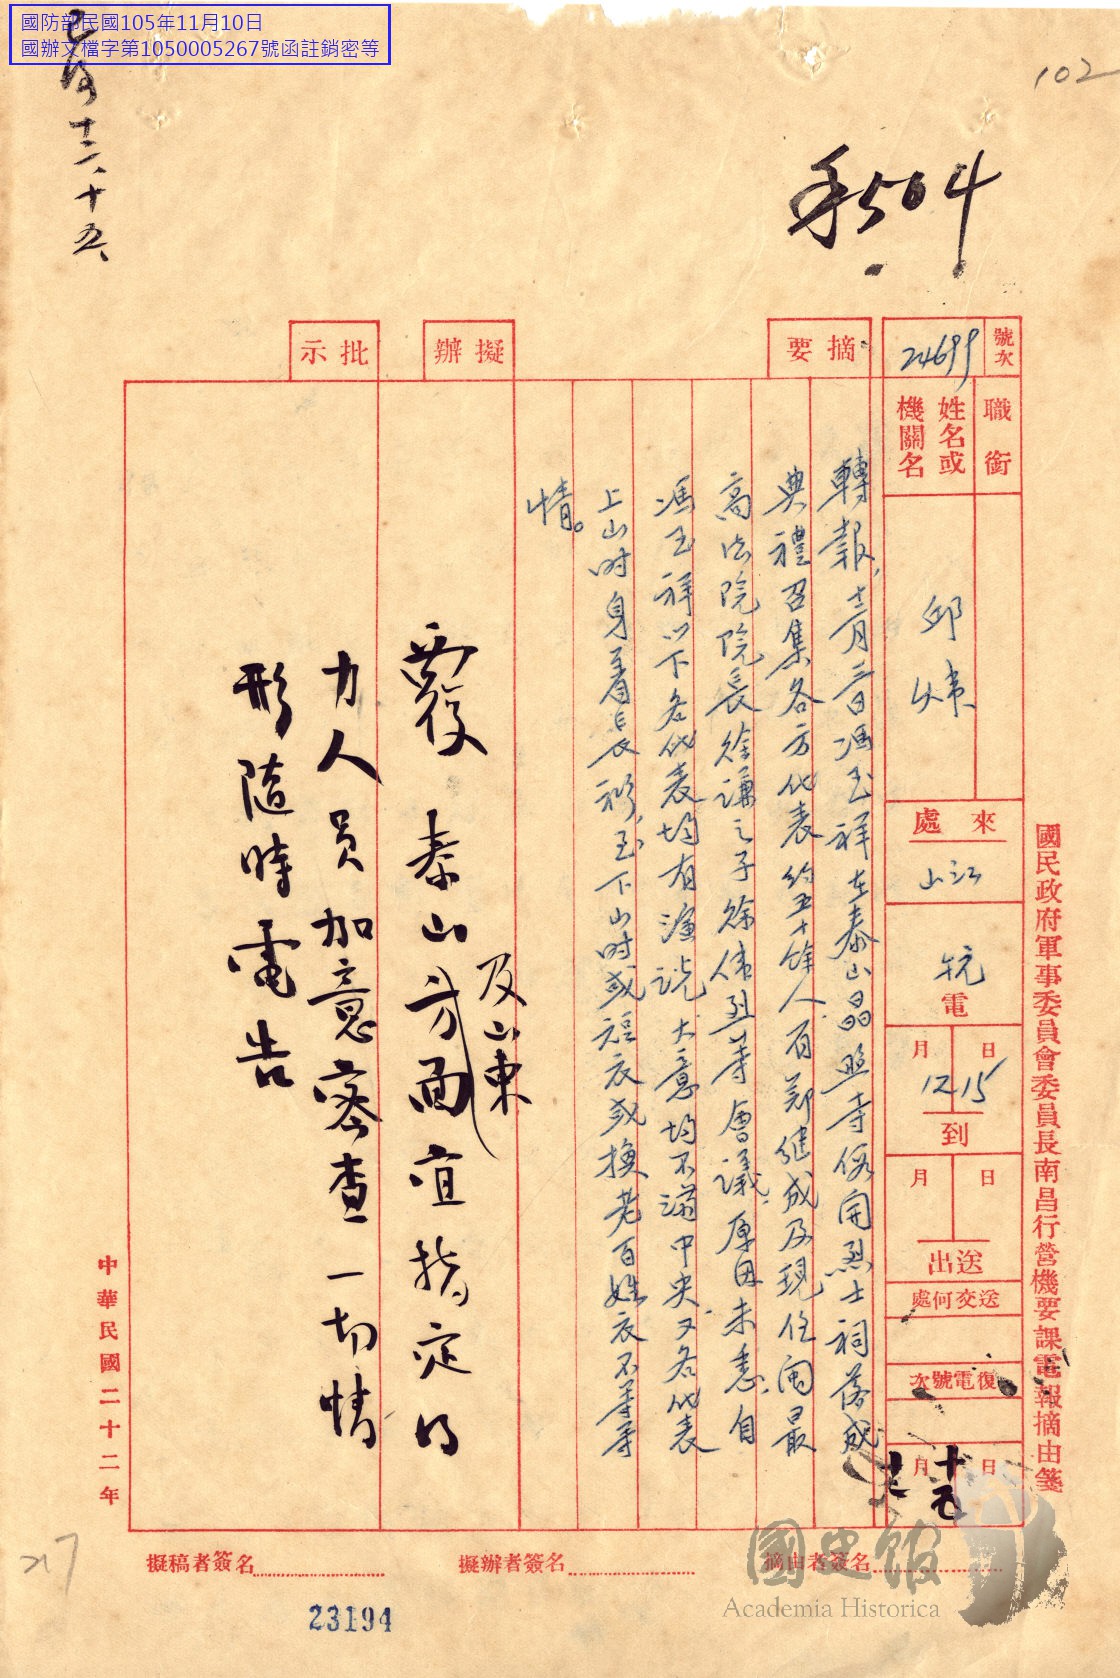 國防部民國105年11月10日
國辦文檔字第1050005267號函註銷密等
十二、十五、
102
手504
國民政府軍事委員會委員長南昌行營機要課電報摘由箋
號次
24699
職銜
姓名或
機關名
邱煒
來處
江山
杭
電
月 日
12 15
到
月 日
送出
送交何處
復電號次
月 日
十二 十五
摘要
轉報，十二月三日馮玉祥在泰山晶照寺後開烈士祠落成
典禮召集各方代表約五十餘人有鄭繼成及現任閩最
高法院院長徐謙之子徐偉烈等會議，原因未悉，自
馮玉祥以下各代表均有演說，大意均不滿中央，又各代表
上山時身着長衫，至下山時或短衣或換老百姓衣不等等
情。
擬辦
批示
覆 泰山方面及山東宜指定得
力人員加意密查一切情
形隨時電告
中華民國二十二年
擬稿者簽名
擬辦者簽名
摘由者簽名
23194
217
國史館
Academia Historica